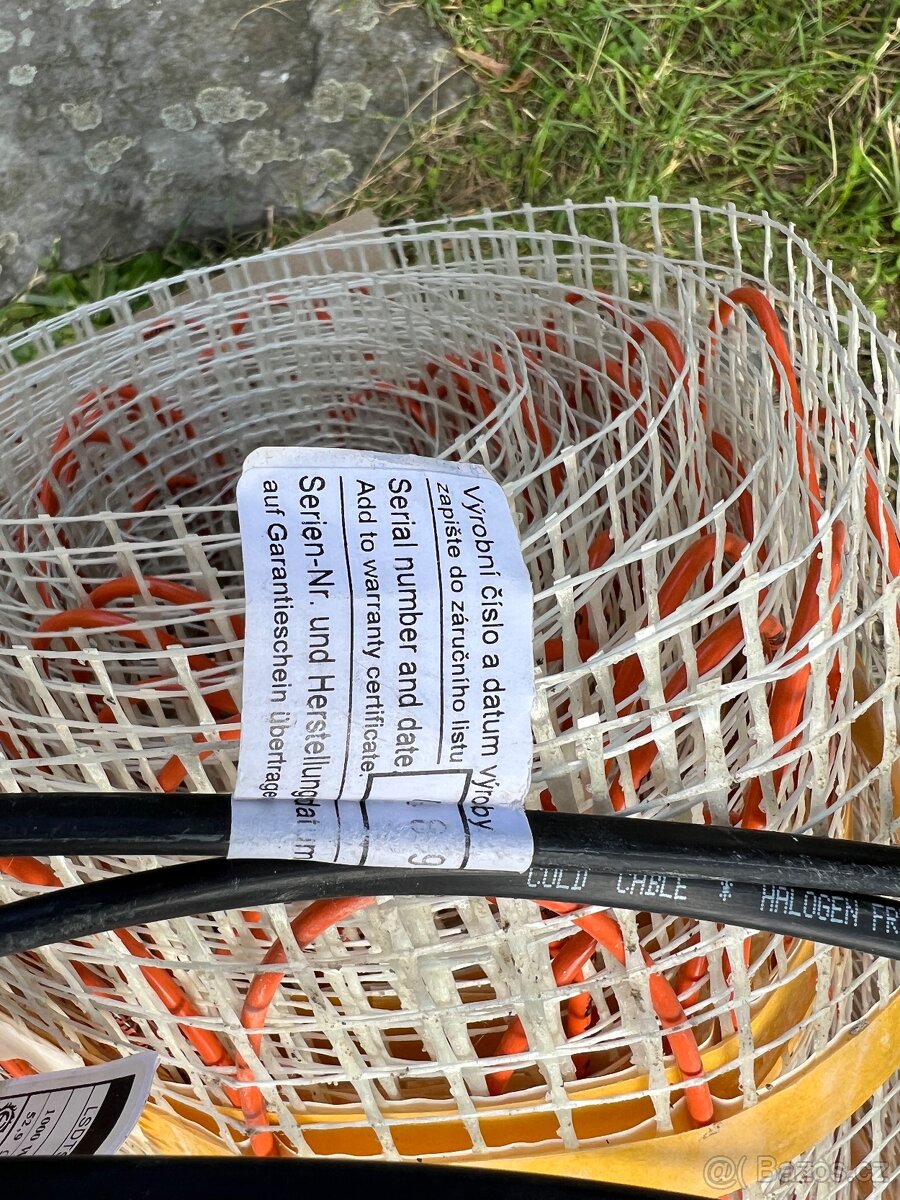 Výrobní číslo a datum výroby
zapište do záručního listu
Serial number and date
Add to warranty certificate.
Serien-Nr. und Herstellungdatum
auf Garantieschein übertrage
COLD CABLE * HALOGEN FR
LSDTS
1000
52.9
@( Bazos.cz